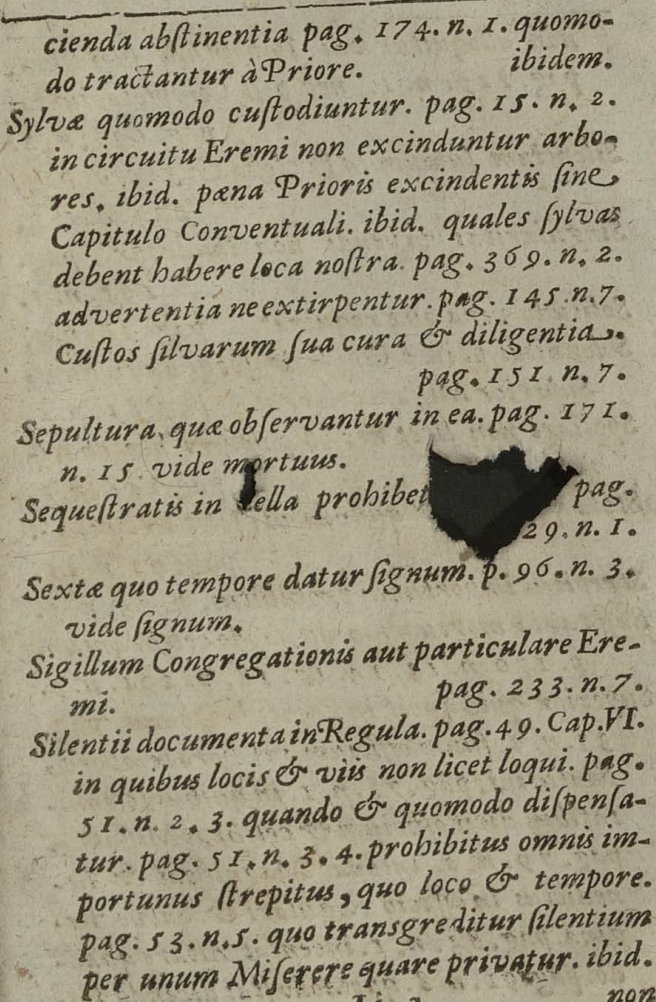 cienda abſtinentia pag. 174. n. 1. quomo-
do tractantur à Priore. ibidem.
Sylvæ quomodo cuſtodiuntur. pag. 15. n. 2.
in circuitu Eremi non excinduntur arbo-
res. ibid. pæna Prioris excindentis ſine
Capitulo Conventuali. ibid. quales ſylvas
debent habere loca noſtra. pag. 369. n. 2.
advertentia ne extirpentur. pag. 145. n. 7.
Cuſtos ſilvarum ſua cura & diligentia.
pag. 151 n. 7.
Sepultura, quæ obſervantur in ea. pag. 171.
n. 15 vide mortuus.
Sequeſtratis in pag.
29. n. 1.
Sextæ quo tempore datur ſignum. p. 96. n. 3.
vide ſignum.
Sigillum Congregationis aut particulare Ere-
mi. pag. 233. n. 7.
Silentii documenta in Regula. pag. 49. Cap. VI.
in quibus locis & viis non licet loqui. pag.
51. n. 2. 3. quando & quomodo diſpenſa-
tur. pag. 51. n. 3. 4. prohibitus omnis im-
portunus ſtrepitus, quo loco & tempore.
pag. 53. n. 5. quo transgreditur ſilentium
per unum Miſerere quare privatur. ibid.
non